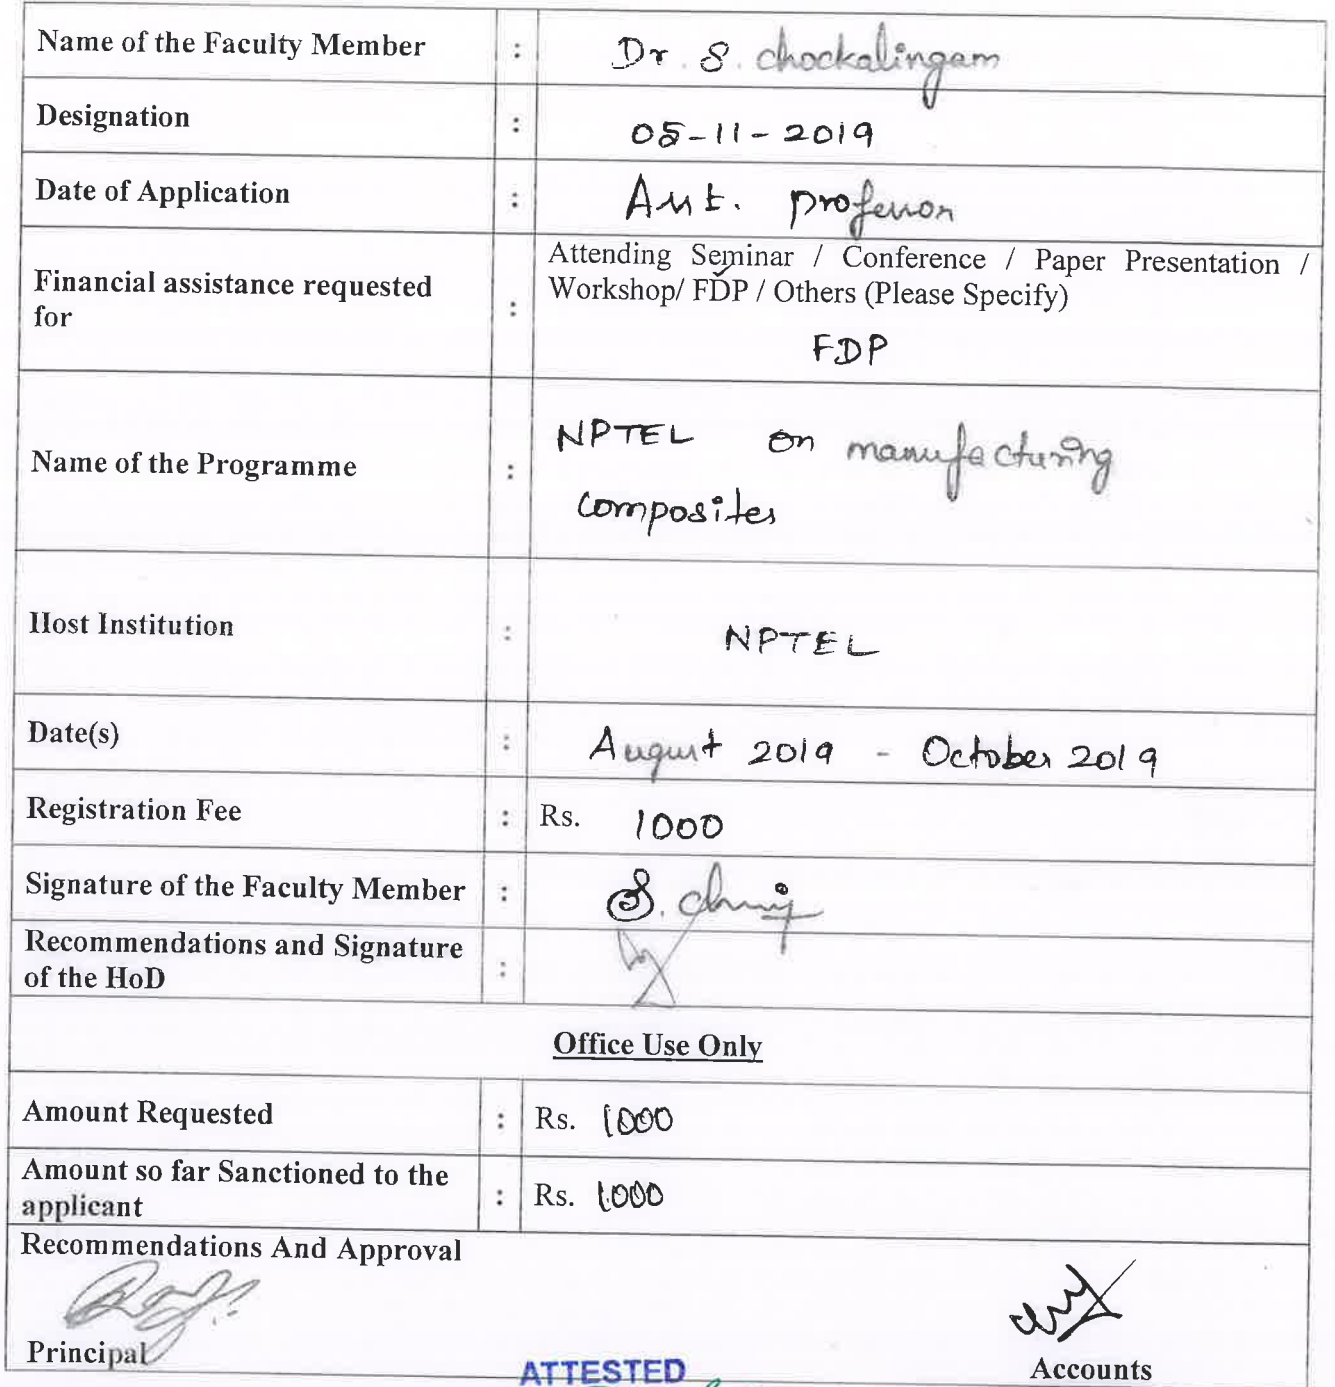 Name of the Faculty Member : Dr. S. chockalingam
Designation : 05-11-2019
Date of Application : Asst. professor
Financial assistance requested for : Attending Seminar / Conference / Paper Presentation /
Workshop/ FDP / Others (Please Specify)
FDP
Name of the Programme : NPTEL on manufacturing
composites
Host Institution : NPTEL
Date(s) : August 2019 - October 2019
Registration Fee : Rs. 1000
Signature of the Faculty Member : S.
Recommendations and Signature
of the HoD :
Office Use Only
Amount Requested : Rs. 1000
Amount so far Sanctioned to the
applicant : Rs. 1000
Recommendations And Approval
Principal
Accounts
ATTESTED